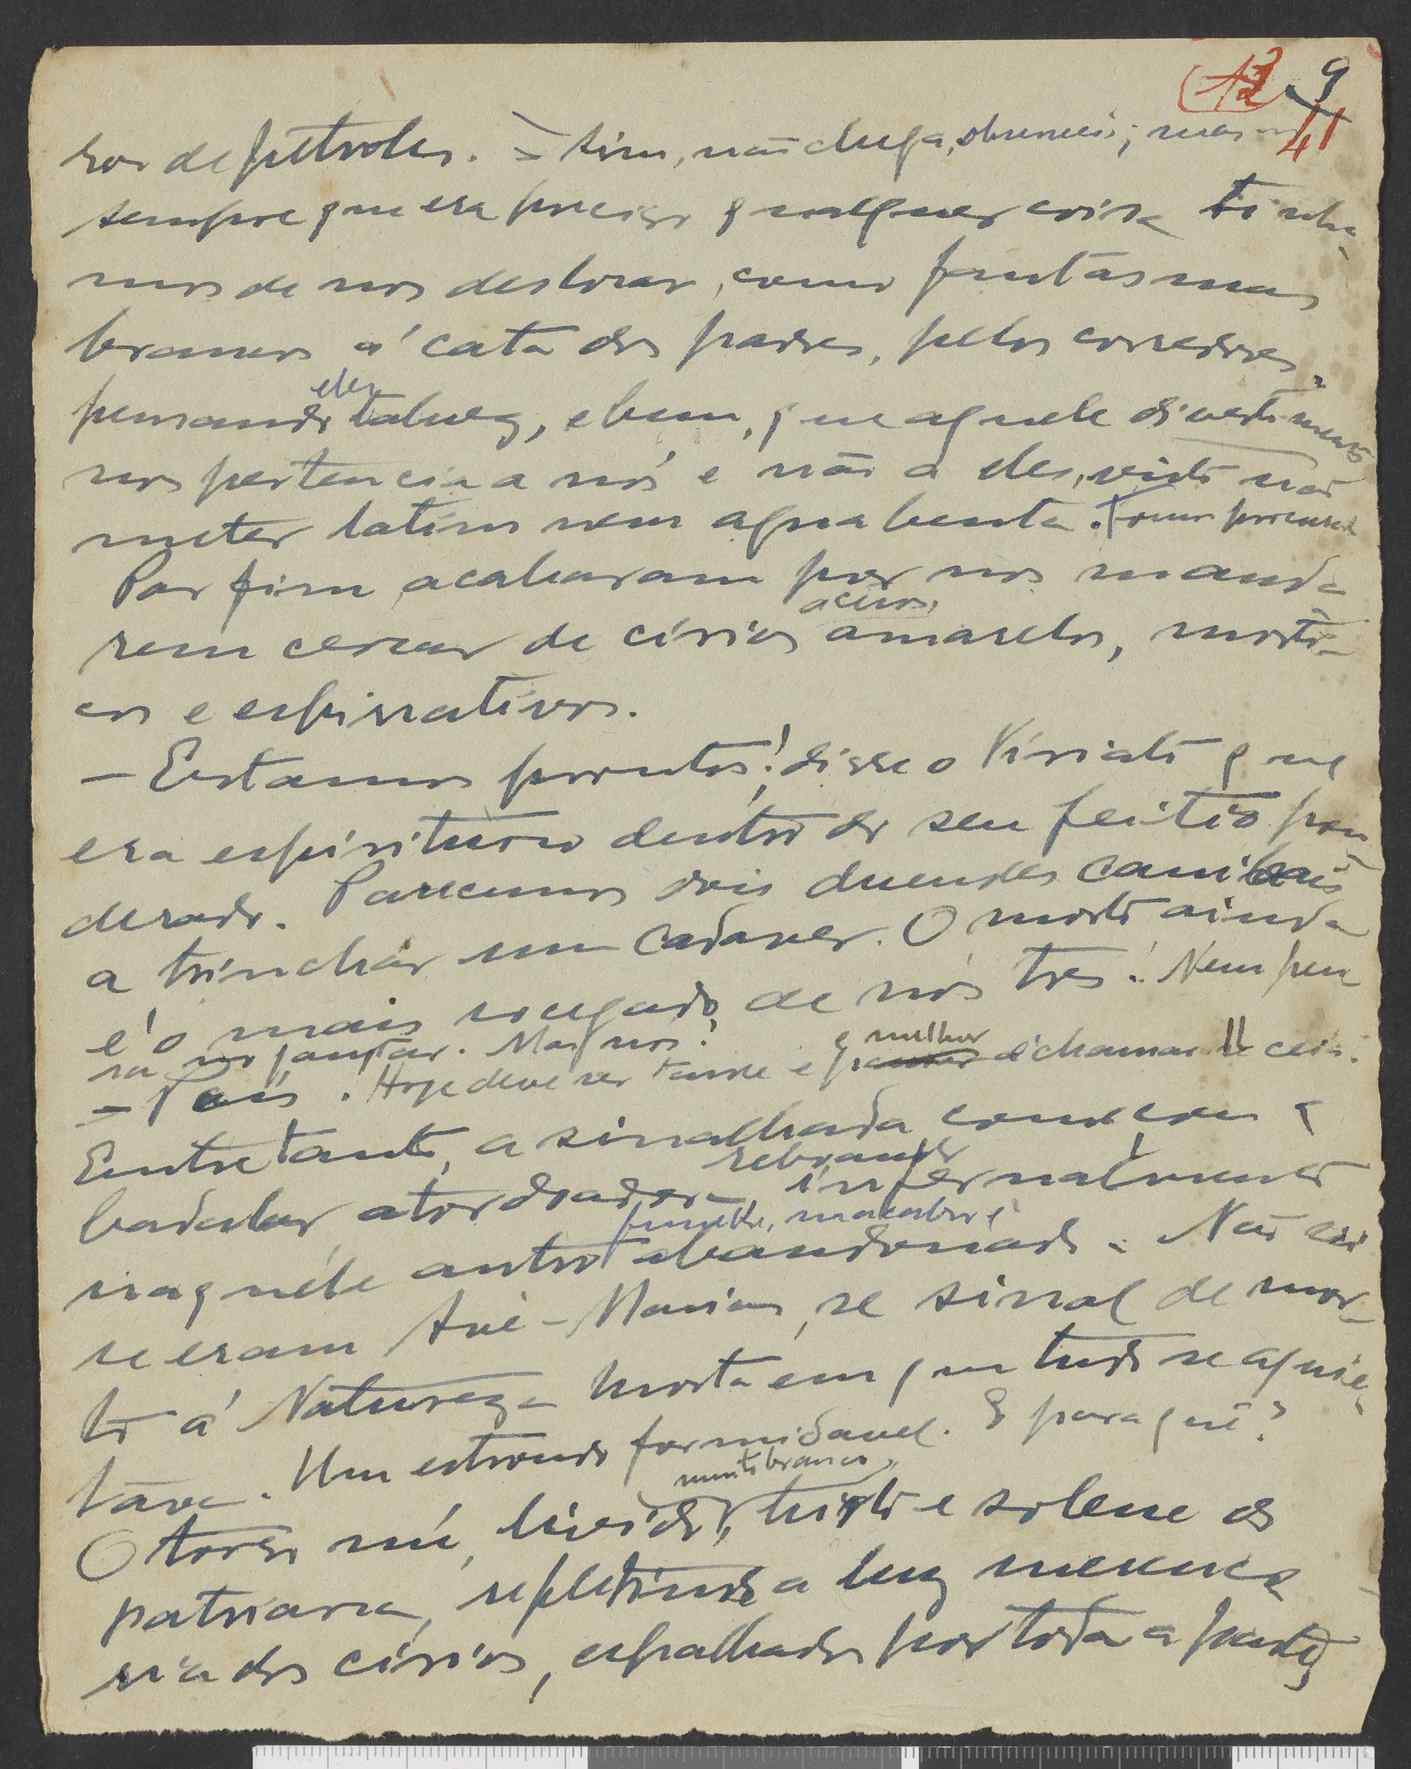 12 9
41
ros de petroleo. — Sim, não chega, observei; mas
sempre que era preciso qualquer coisa tinha-
mos de nos deslocar, como fantasmas
brancos á cata dos padres, pelos corredores,
pensando eles talvez, e bem, que aquele divertimento
nos pertencia a nós e não a eles, visto não
meter latim nem agua benta.
Por fim acabaram por nos manda-
rem cercar de círios acesos, amarelos, morti-
cos e espirrativos.
— Estamos prontos! disse o Viriato que
era espirituoso dentro do seu feitio pon-
derado. Parecemos dois duendes canibais
a trinchar um cadaver. O morto ainda
é o mais socegado de nós tres! Nem pen
sa no jantar. Mas nós?
— Pois. Hoje deve ser tarde e o melhor é chamar-lhe ceia.
Entretanto, a sinalhada começou a
badalar atordoadora, rebrando infernalmente
naquele antro funebre, macabro e abandonado. Não sei
se eram Avé-Marias, se sinal de mor-
to á Natureza morta em que tudo se aquie-
tava. Um estrondo formidavel. E para quê?
O torso nú, livido, muito branco, hirto e solene do
patriarca, refletindo a luz mexuca
ria dos círios, espalhados por toda a parte,